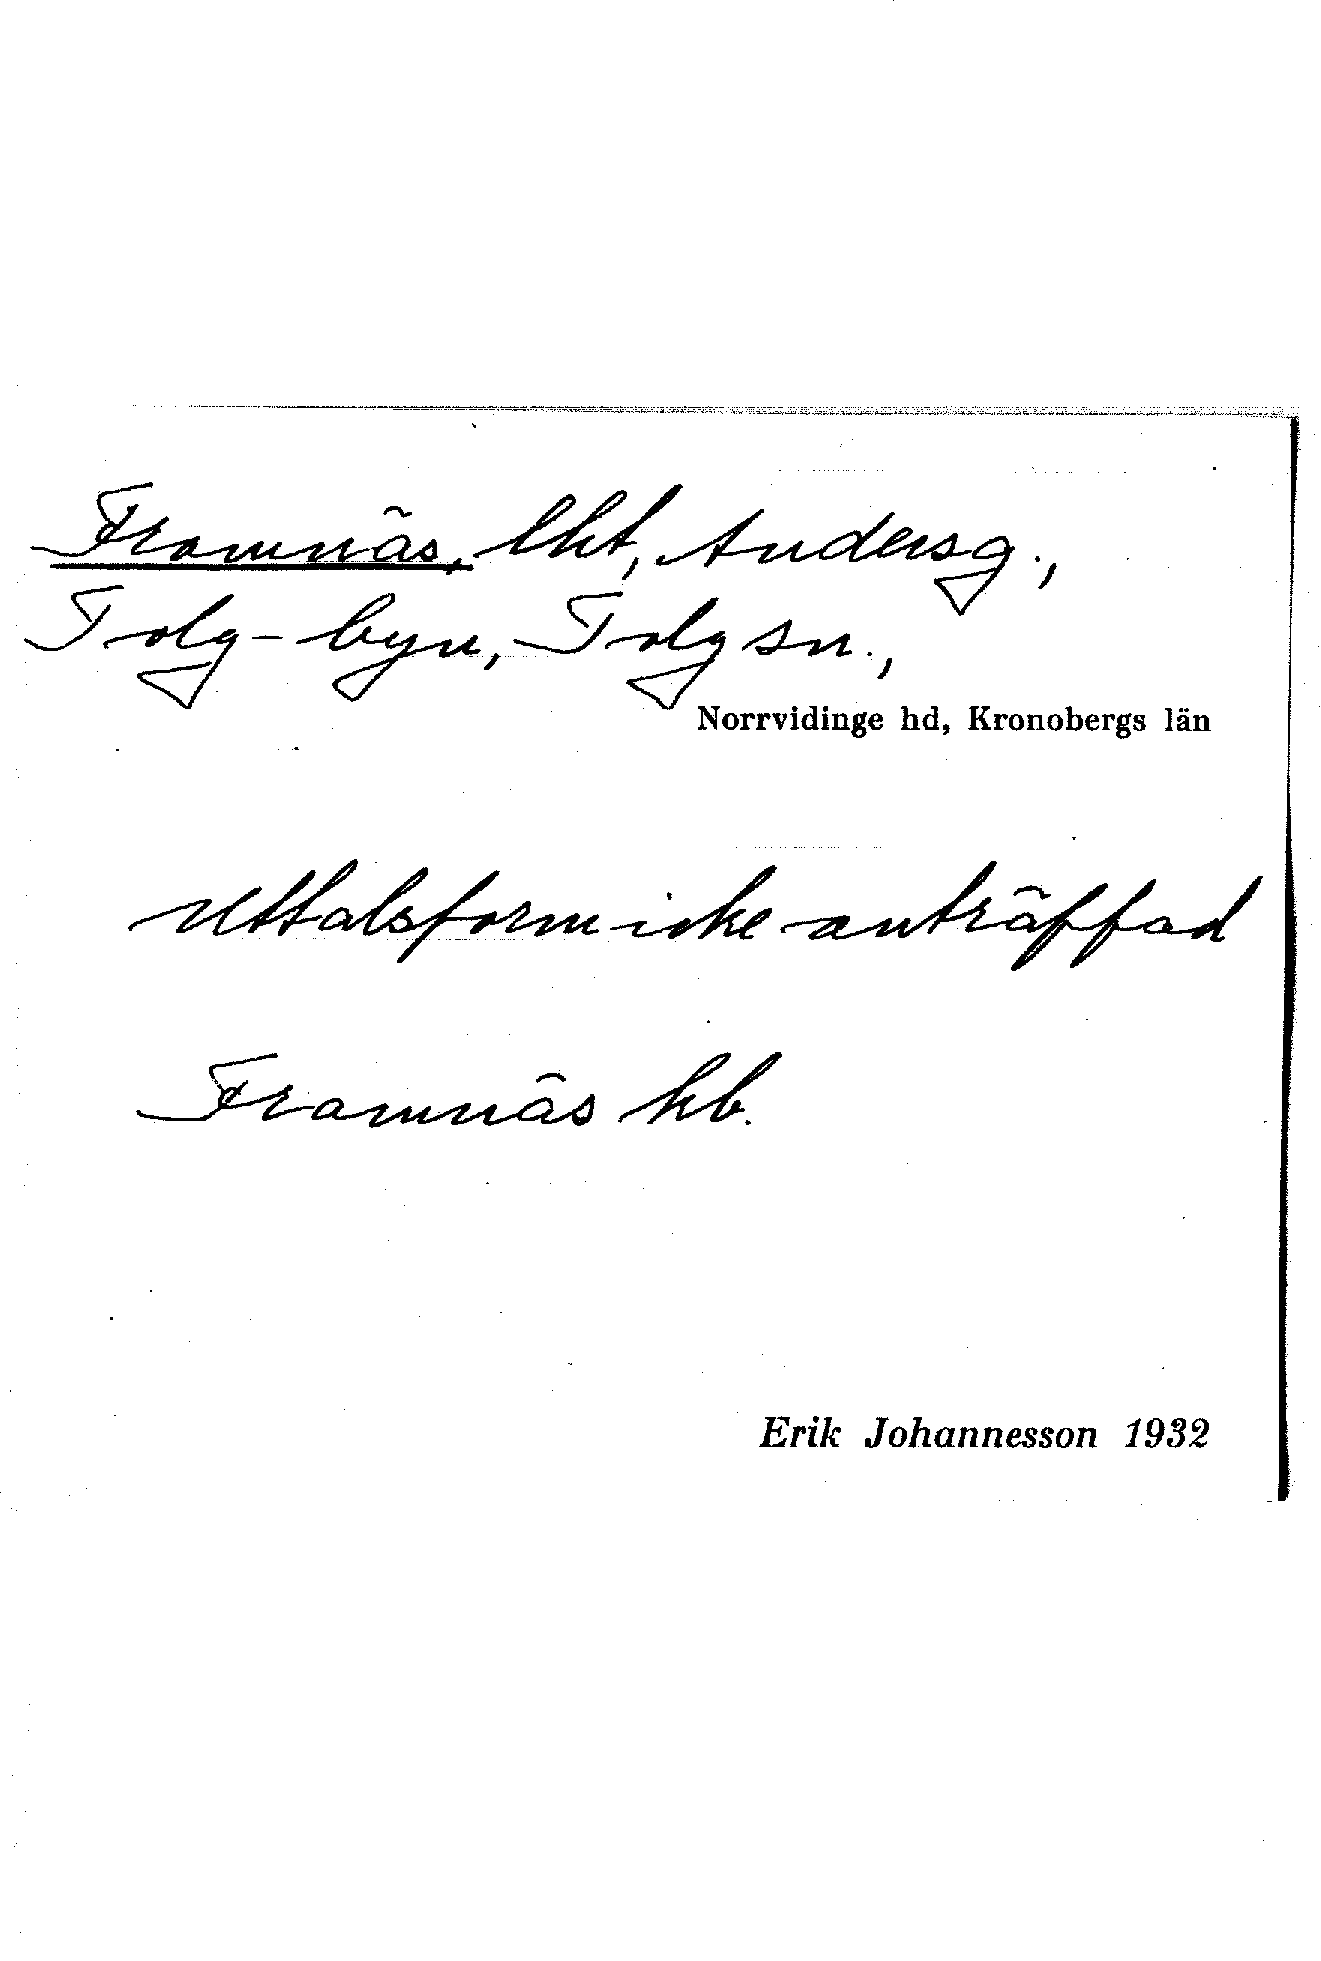 Framnäs, lht, Andersg.,
Tolg-byn, Tolg sn.,
Norrvidinge hd, Kronobergs län
Uttalsform icke anträffad
Framnäs kb.
Erik Johannesson 1932